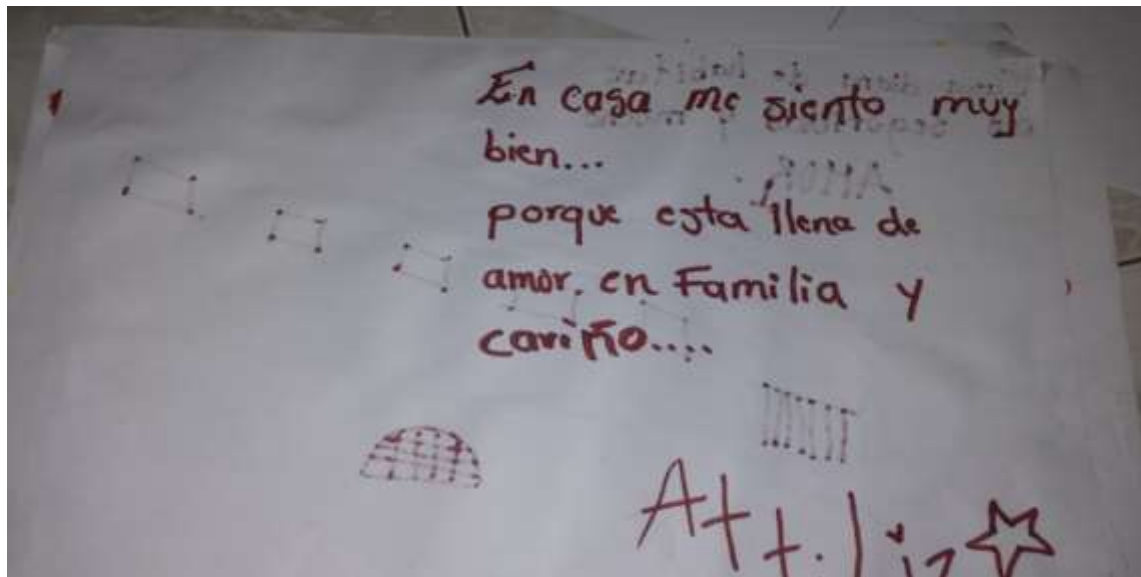 En casa me siento muy
bien...
porque esta llena de
amor. en Familia y
cariño....
Att. Liz